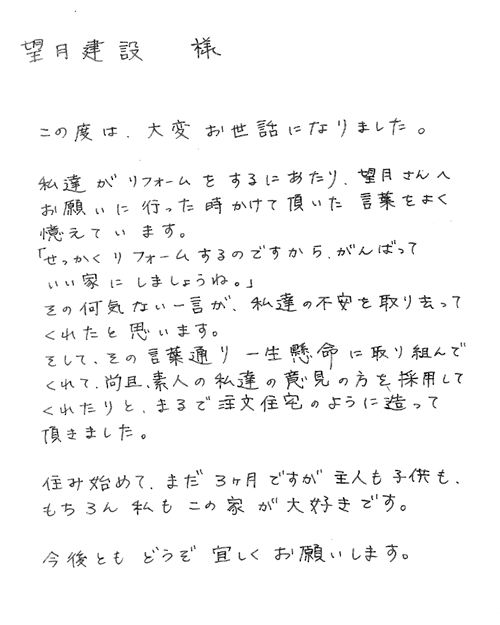 望月建設　様
この度は、大変お世話になりました。
私達がリフォームをするにあたり、望月さんへ
お願いに行った時かけて頂いた言葉をよく
憶えています。
「せっかくリフォームするのですから、がんばって
いい家にしましょうね。」
その何気ない一言が、私達の不安を取り去って
くれたと思います。
そして、その言葉通り一生懸命に取り組んで
くれて、尚且、素人の私達の意見の方を採用して
くれたりと、まるで注文住宅のように造って
頂きました。
住み始めて、まだ3ヶ月ですが主人も子供も、
もちろん私もこの家が大好きです。
今後ともどうぞ宜しくお願いします。